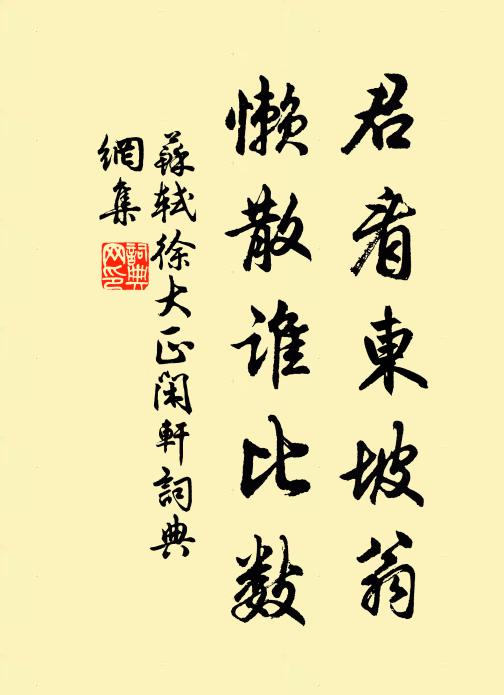 君看東坡翁
懒散誰比數
蘇軾徐大正閑軒詞典
網集
詞典
网印